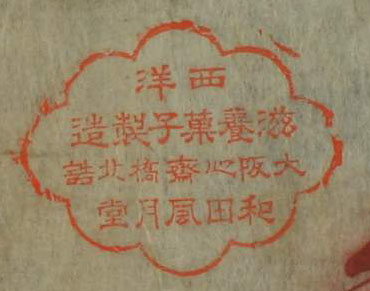 西洋
滋養菓子製造
大阪心斎橋北詰
和田風月堂